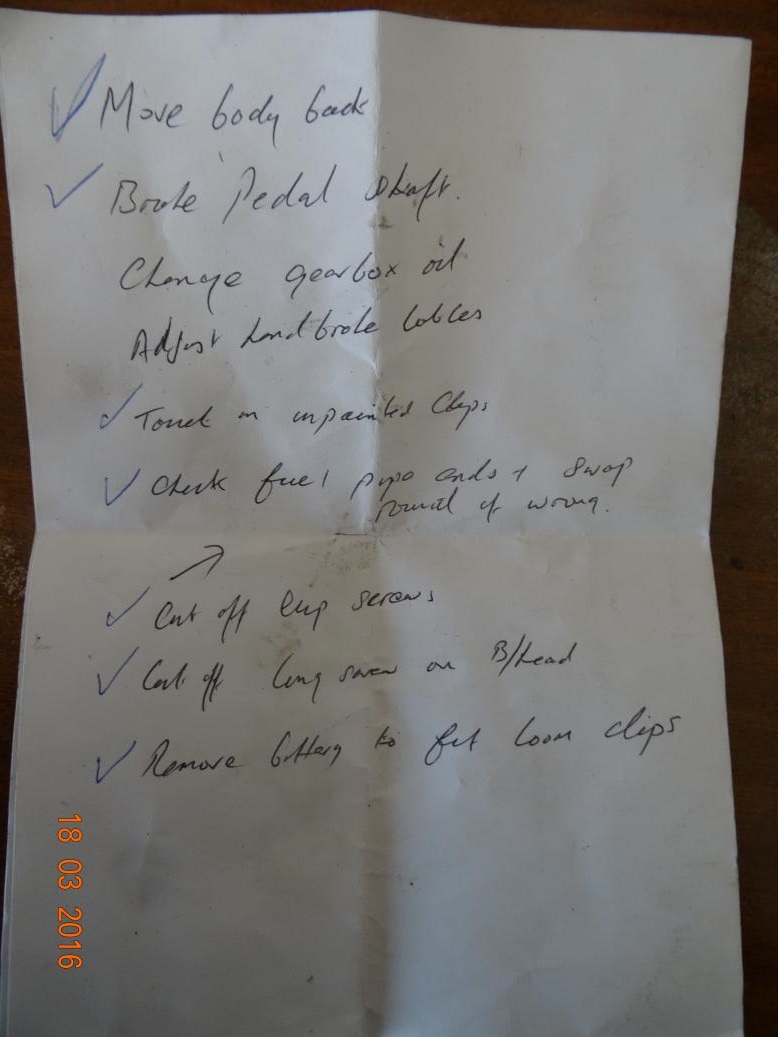 Move body back
Brake Pedal shaft.
Change gearbox oil
Adjust handbrake cables
Touch in unpainted Clips
Check fuel pipe ends + swap
round if wrong.
Cut off screws
Cut off long screw on B/head
Remove battery to fit loom clips
18 03 2016